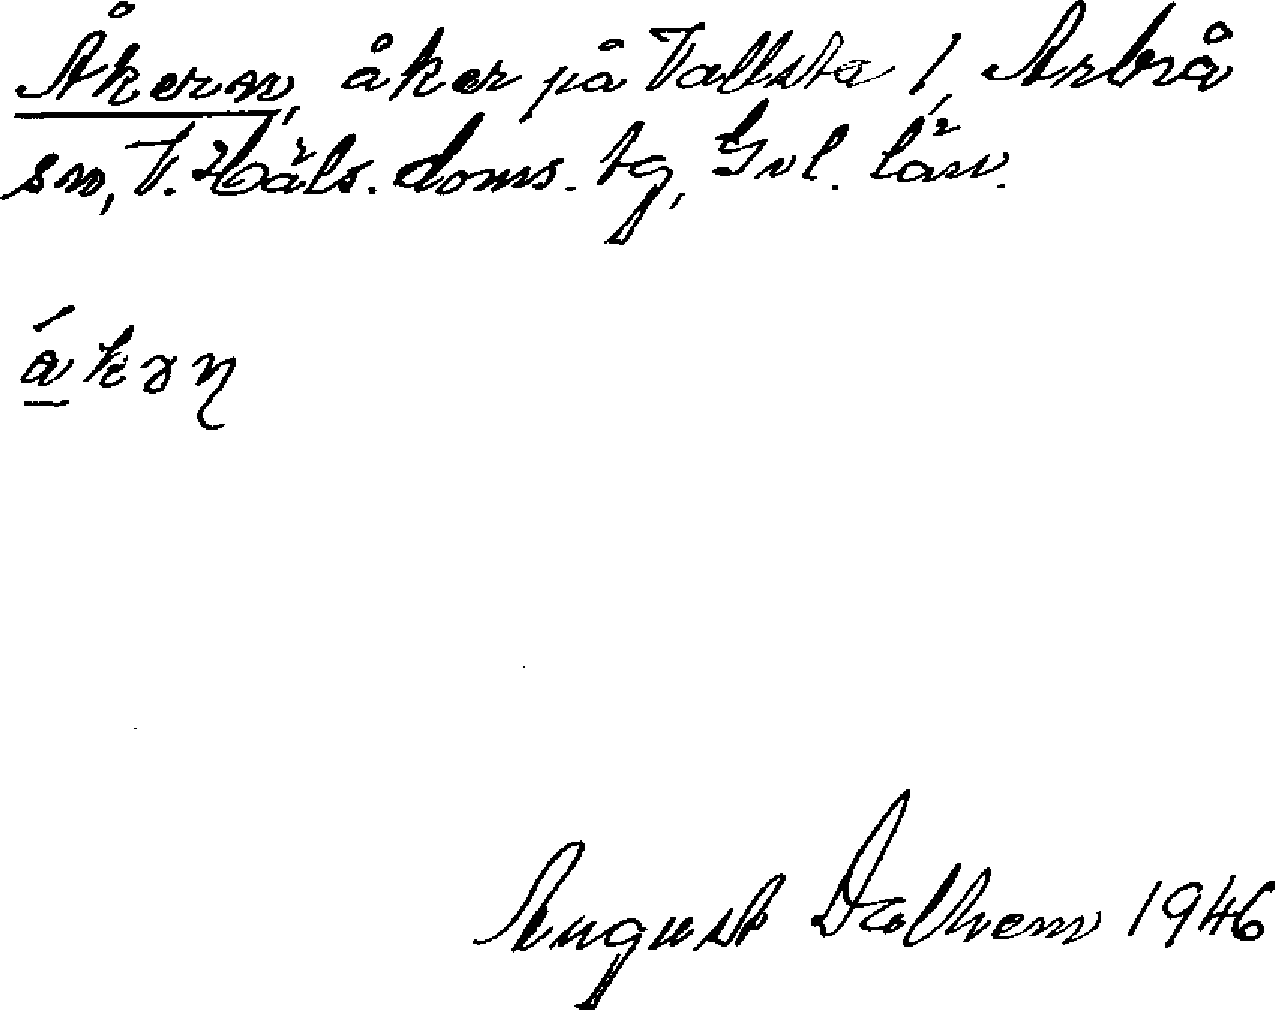 Åkern, åker på Vallsta 1, Arbrå
sn, V. Häls. doms. tg, Gvl. län.
á̱kərn
August Dalhem 1946